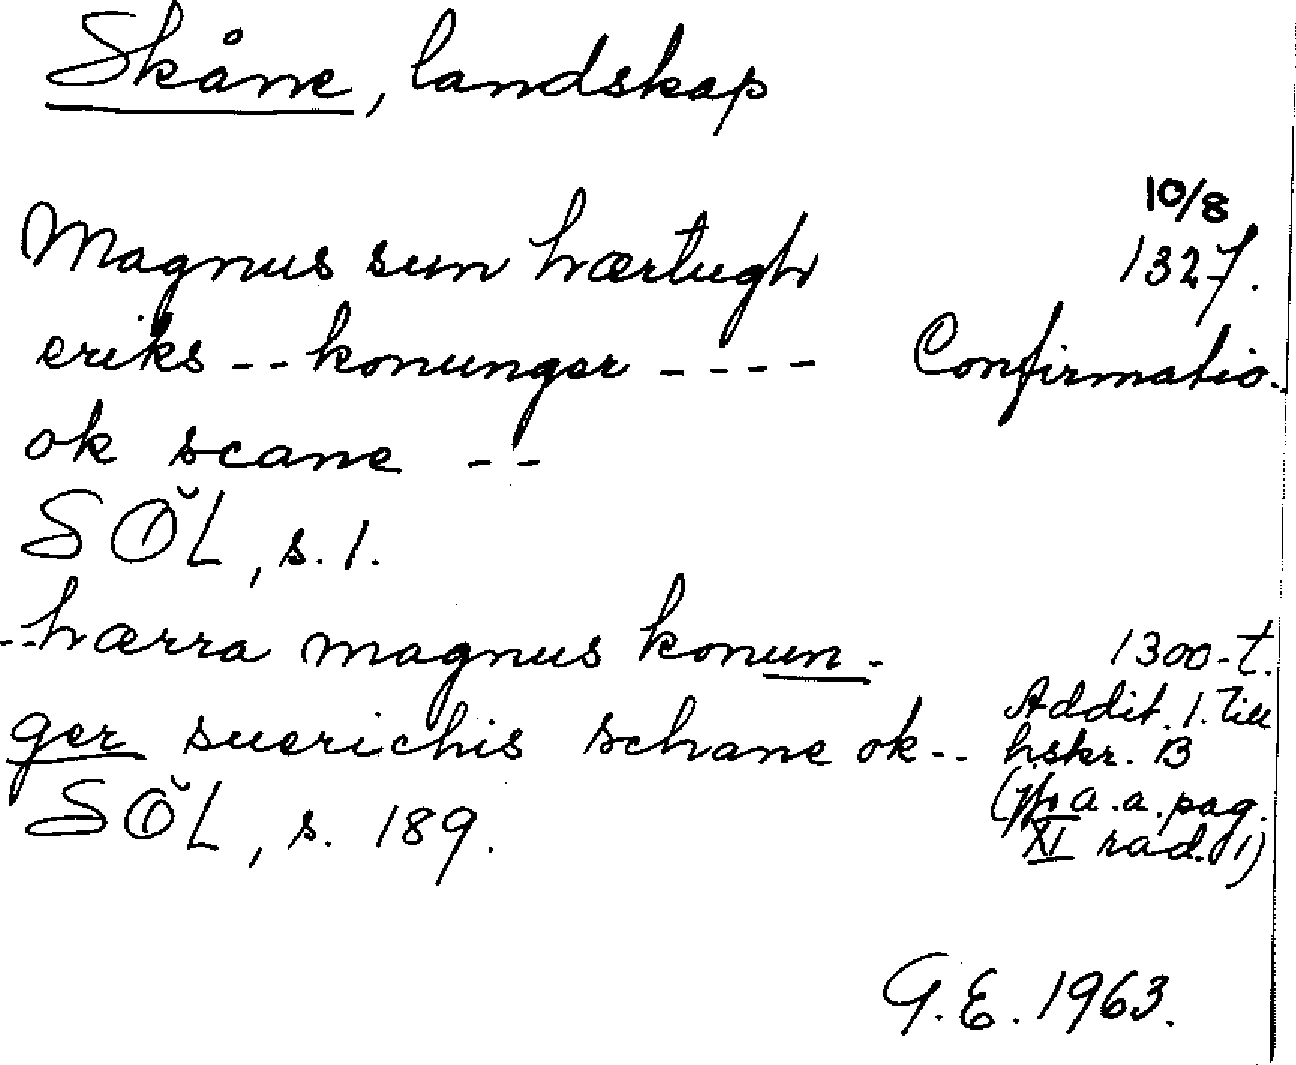 Skåne, landskap
10/8
Magnus sun hærtugh 1327.
eriks -- konunger ---- Confirmatio.
ok scane --
SÖL, s. 1.
--hærra magnus konun- 1300-t.
Addit. 1. till
ger suerichis schane ok-- hskr. B
(jfr a.a. pag.
SÖL, s. 189. XI rad. 1)
G.E. 1963.